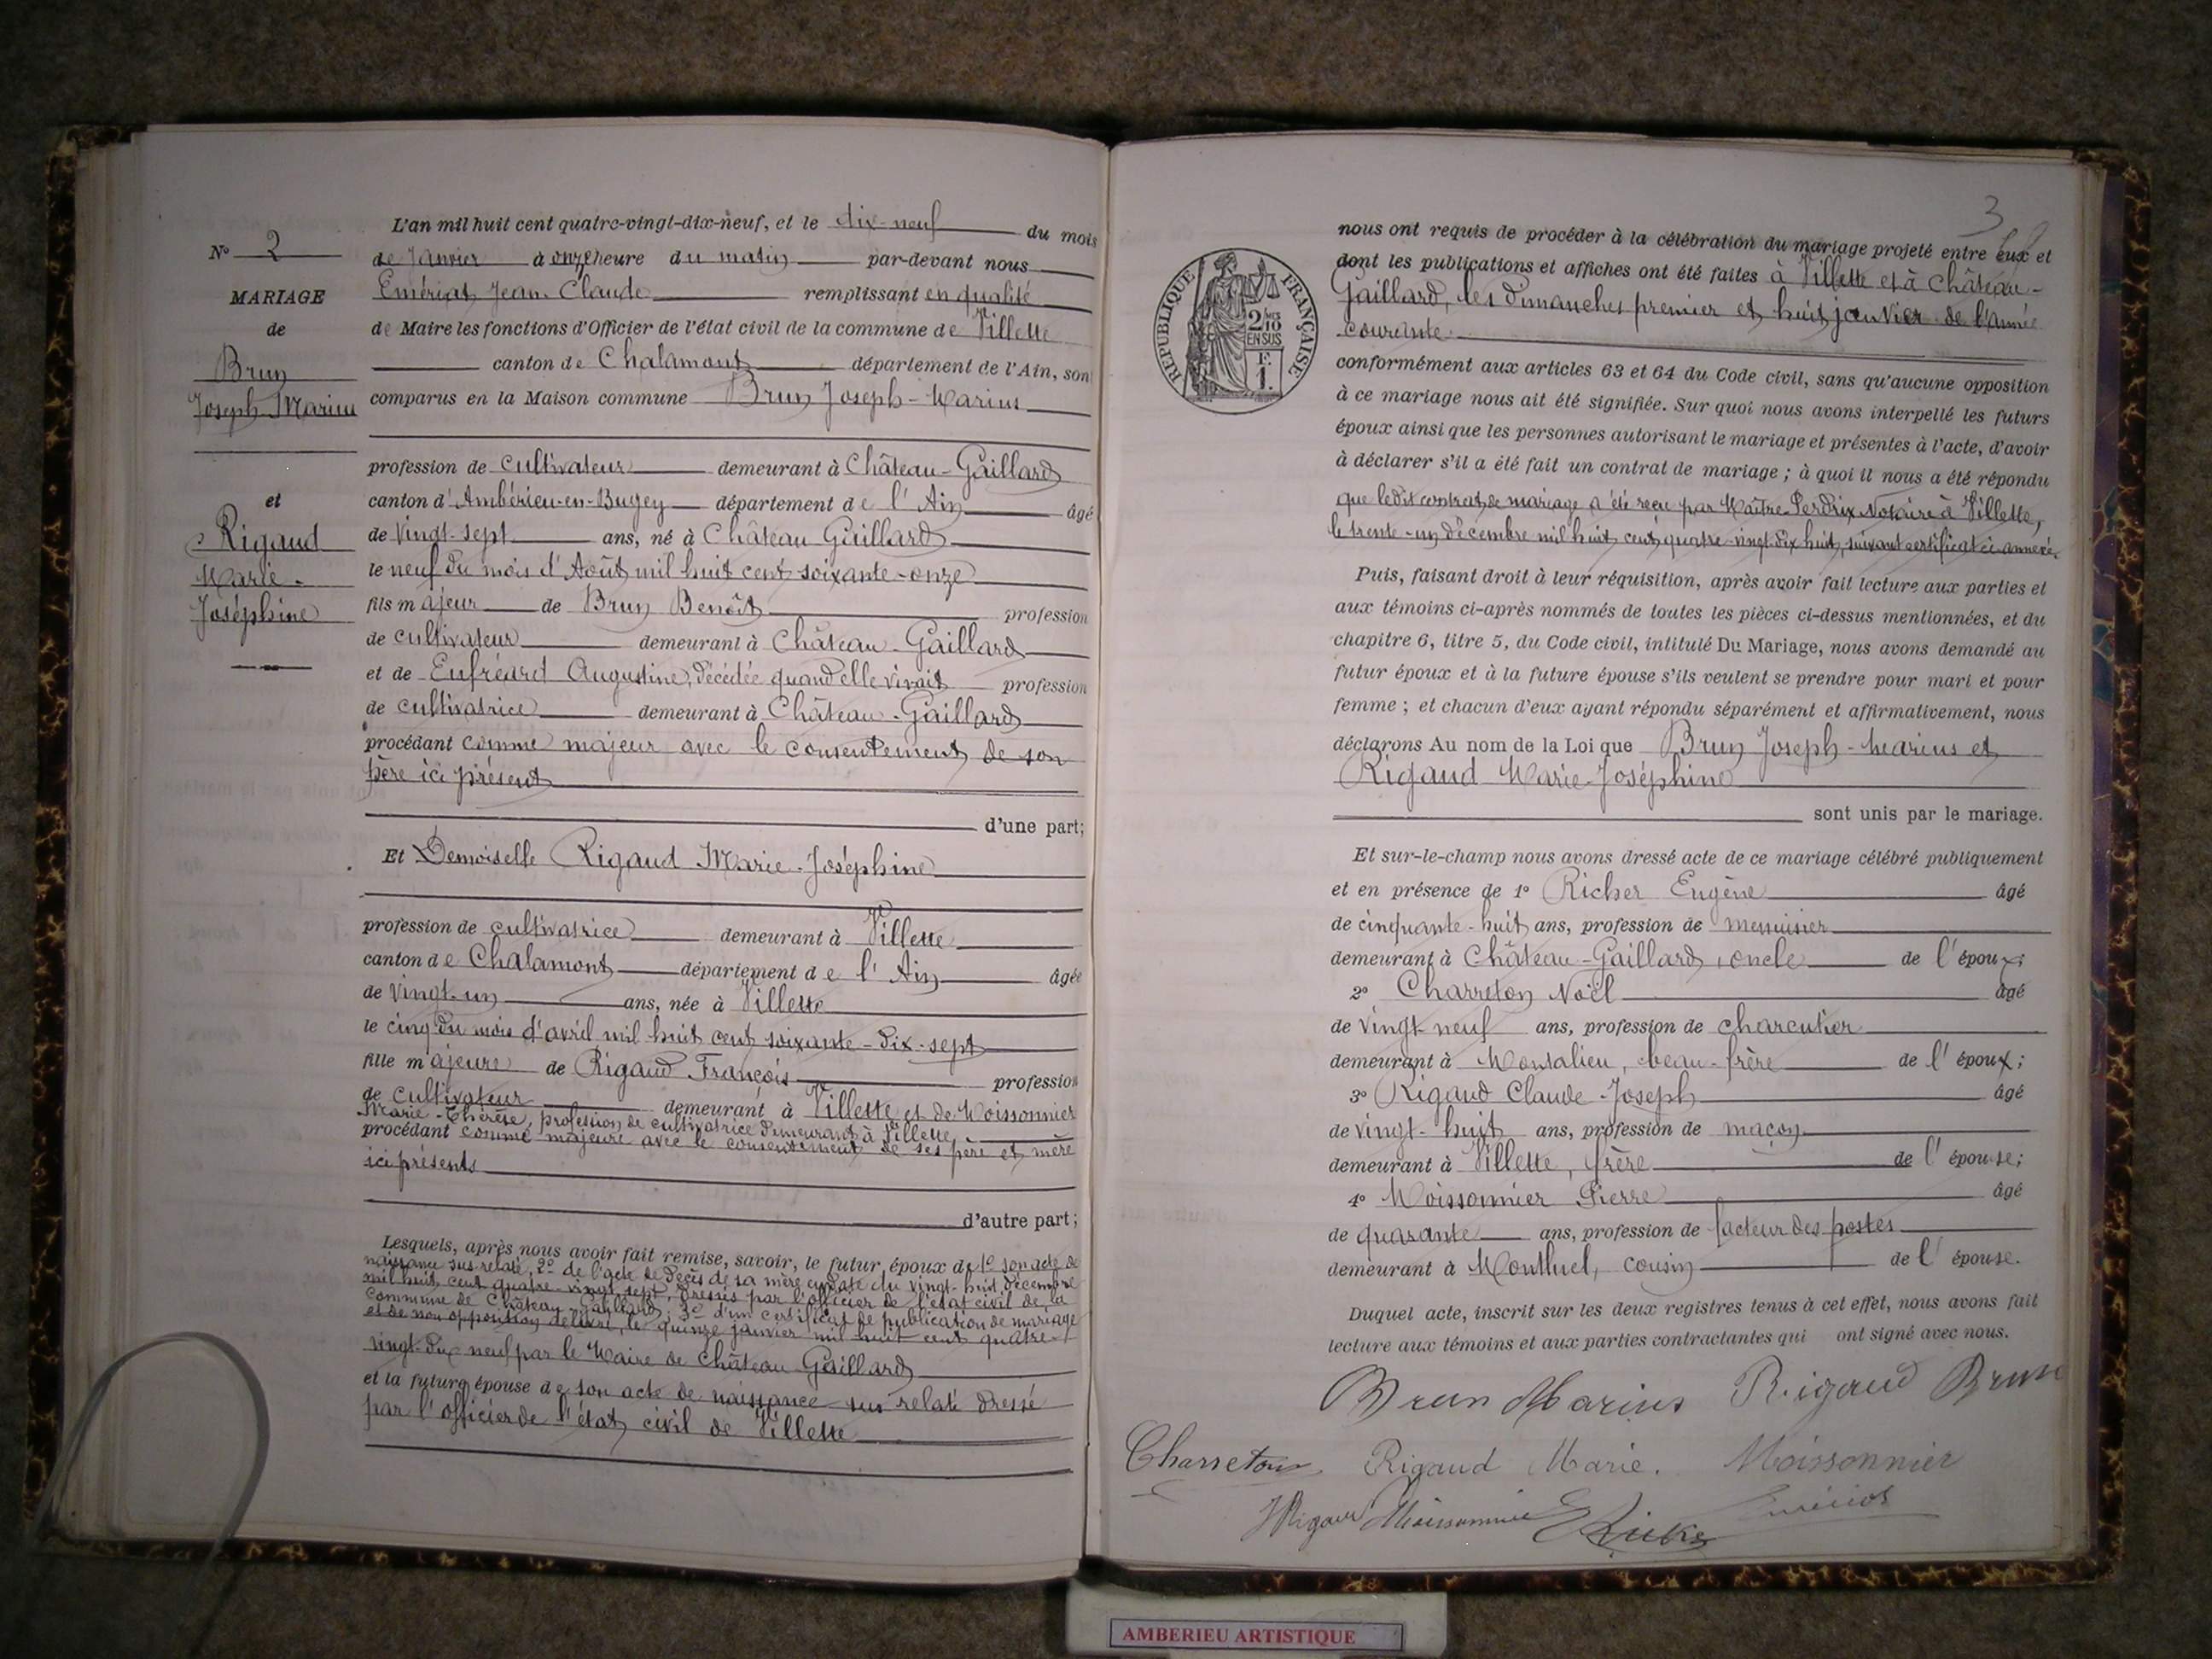 N° 2
MARIAGE
de
Brun
Joseph Marius
et
Rigaud
Marie-
Joséphine
L'an mil huit cent quatre-vingt-dix-neuf, et le dix-neuf du mois
de Janvier à onze heure du matin par-devant nous
Emériat Jean-Claude remplissant en qualité
de Maire les fonctions d'Officier de l'état civil de la commune de Villette
canton de Chalamont département de l'Ain, son
comparus en la Maison commune Brun Joseph-Marius
profession de cultivateur demeurant à Château-Gaillard
canton d'Ambérieu-en-Bugey département de l'Ain âgé
de vingt-sept ans, né à Château Gaillard
le neuf du mois d'Août mil huit cent soixante-onze
fils majeur de Brun Benoît profession
de cultivateur demeurant à Château-Gaillard
et de Augustine, décédée quand elle vivait profession
de cultivatrice demeurant à Château-Gaillard
procédant comme majeur avec le consentement de son
père ici présent
d'une part;
Et Demoiselle Rigaud Marie-Joséphine
profession de cultivatrice demeurant à Villette
canton de Chalamont département de l'Ain âgée
de vingt-un ans, née à Villette
le cinq du mois d'avril mil huit cent soixante-dix-sept
fille majeure de Rigaud François profession
de cultivateur demeurant à Villette et de Moissonnier
Marie-Thérèse, profession de cultivatrice demeurant à Villette,
procédant comme majeure avec le consentement de ses père et mère
ici présents
d'autre part;
Lesquels, après nous avoir fait remise, savoir, le futur, époux de 1° son acte de
naissance sus-relaté, 2° de l'acte de décès de sa mère en date du vingt-huit décembre
mil huit cent quatre-vingt-sept, dressés par l'officier de l'état civil de la
commune de Château-Gaillard; 3° d'un certificat de publication de mariage
et de non opposition délivré, le quinze janvier mil huit cent quatre-
vingt-dix-neuf par le Maire de Château Gaillard
et la future épouse de son acte de naissance sus relaté dressé
par l'officier de l'état civil de Villette
3
RÉPUBLIQUE FRANÇAISE
2/10 EN SUS
F. 1.
nous ont requis de procéder à la célébration du mariage projeté entre eux et
dont les publications et affiches ont été faites à Villette et à Château-
Gaillard, les dimanches premier et huit janvier de l'année
courante
conformément aux articles 63 et 64 du Code civil, sans qu'aucune opposition
à ce mariage nous ait été signifiée. Sur quoi nous avons interpellé les futurs
époux ainsi que les personnes autorisant le mariage et présentes à l'acte, d'avoir
à déclarer s'il a été fait un contrat de mariage; à quoi il nous a été répondu
que ledit contrat de mariage a été reçu par Maître Perdrix Notaire à Villette,
le trente-un décembre mil huit cent quatre-vingt-dix huit, suivant certificat ci-annexé.
Puis, faisant droit à leur réquisition, après avoir fait lecture aux parties et
aux témoins ci-après nommés de toutes les pièces ci-dessus mentionnées, et du
chapitre 6, titre 5, du Code civil, intitulé Du Mariage, nous avons demandé au
futur époux et à la future épouse s'ils veulent se prendre pour mari et pour
femme; et chacun d'eux ayant répondu séparément et affirmativement, nous
déclarons Au nom de la Loi que Brun Joseph-Marius et
Rigaud Marie-Joséphine
sont unis par le mariage.
Et sur-le-champ nous avons dressé acte de ce mariage célébré publiquement
et en présence de 1° Richer Eugène âgé
de cinquante-huit ans, profession de menuisier
demeurant à Château-Gaillard, oncle de l'époux;
2° Charreton Noël âgé
de vingt-neuf ans, profession de charcutier
demeurant à Montalieu, beau-frère de l'époux;
3° Rigaud Claude-Joseph âgé
de vingt-huit ans, profession de maçon
demeurant à Villette, frère de l'épouse;
4° Moissonnier Pierre âgé
de quarante ans, profession de facteur des postes
demeurant à Montluel, cousin de l'épouse.
Duquel acte, inscrit sur les deux registres tenus à cet effet, nous avons fait
lecture aux témoins et aux parties contractantes qui ont signé avec nous.
Brun Marius Rigaud Brun
Charreton Rigaud Marie. Moissonnier
JRigaud Moissonnier
AMBERIEU ARTISTIQUE